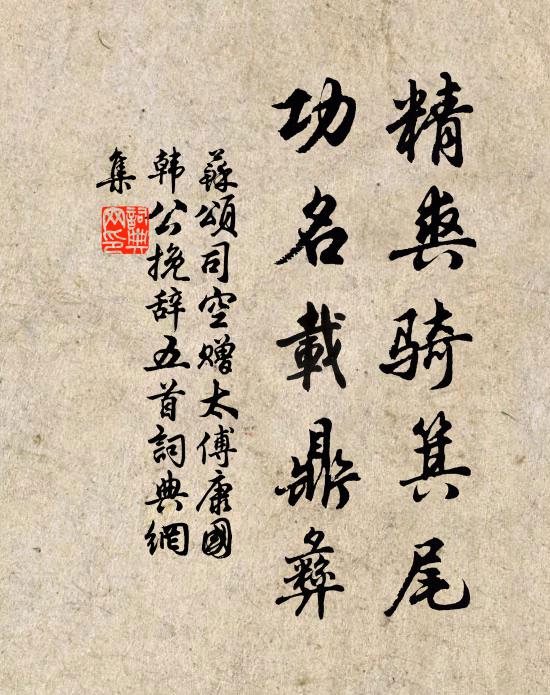 精爽骑箕尾
功名載鼎彝
蘇頌司空贈太傅康國
韩公挽辞五首詞典網
集
詞典网印